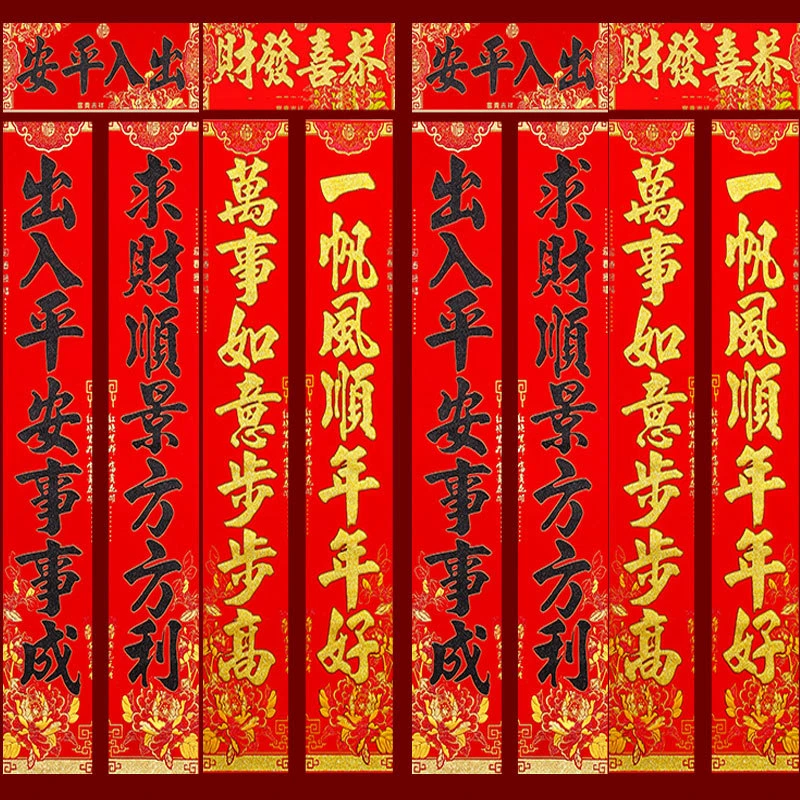 恭喜發財
出入平安
富貴吉祥
恭喜發財
出入平安
富貴吉祥
一帆風順年年好
萬事如意步步高
求財順景方方利
出入平安事事成
一帆風順年年好
萬事如意步步高
求財順景方方利
出入平安事事成